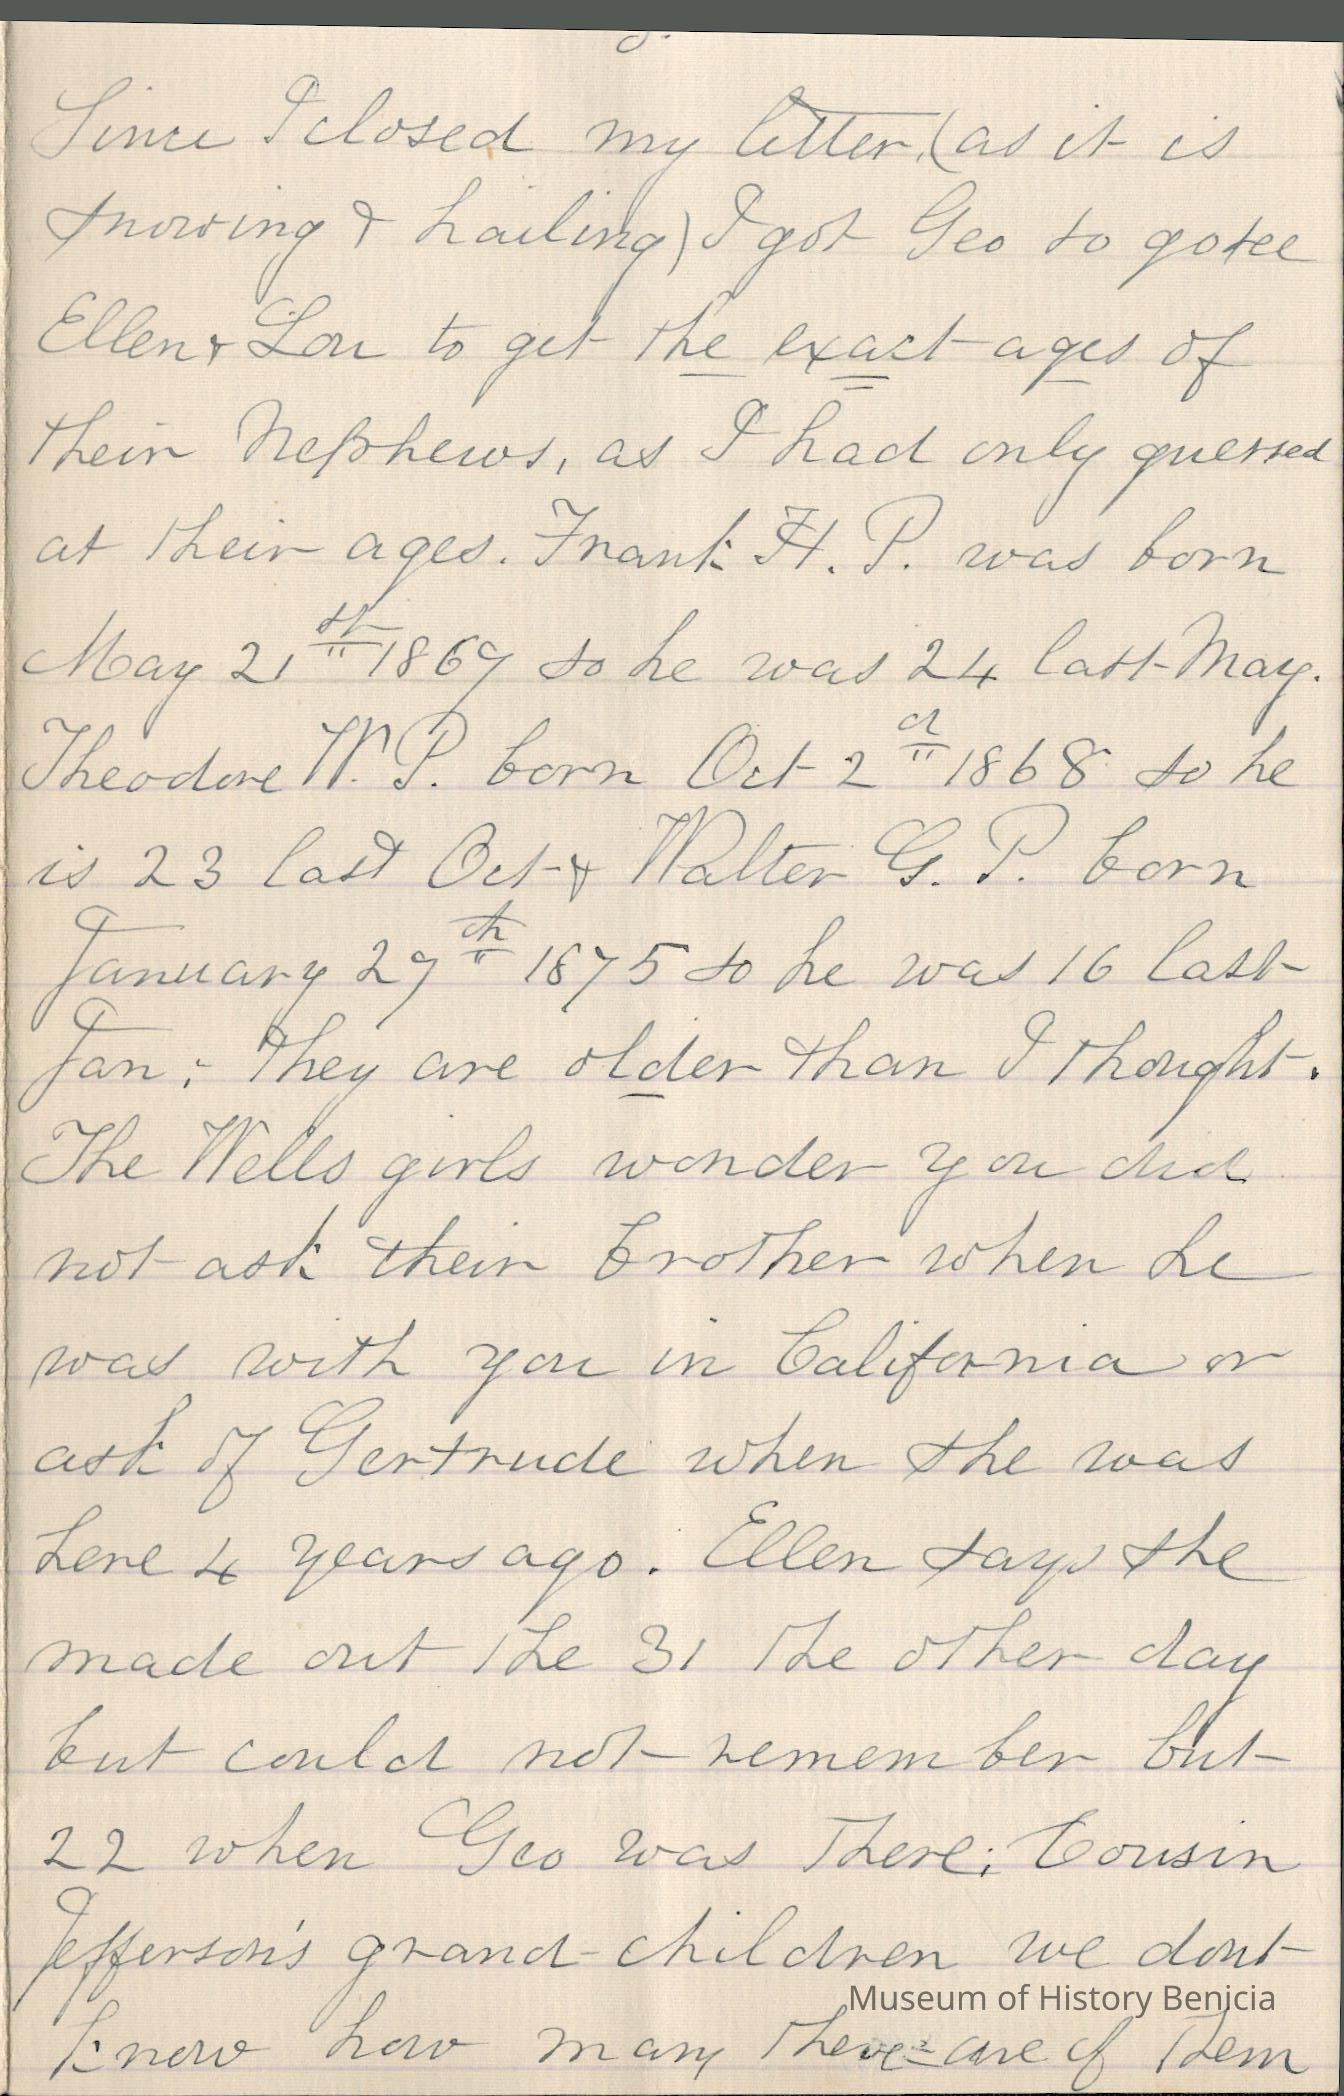 Since I closed my letter, (as it is
snowing & hailing) I got Geo to go see
Ellen & Lou to get the exact ages of
their Nephews, as I had only guessed
at their ages. Frank H. P. was born
May 21th 1867 so he was 24 last May.
Theodore W. P. born Oct 2d 1868 so he
is 23 last Oct & Walter G. P. born
January 27th 1875 so he was 16 last
Jan; they are older than I thought.
The Wells girls wonder you did
not ask their brother when he
was with you in California or
ask of Gertrude when she was
here 4 years ago. Ellen says she
made out the 31 the other day
but could not remember but
22 when Geo was there; Cousin
Jefferson's grand-children we dont
know how many there are of them
Museum of History Benicia